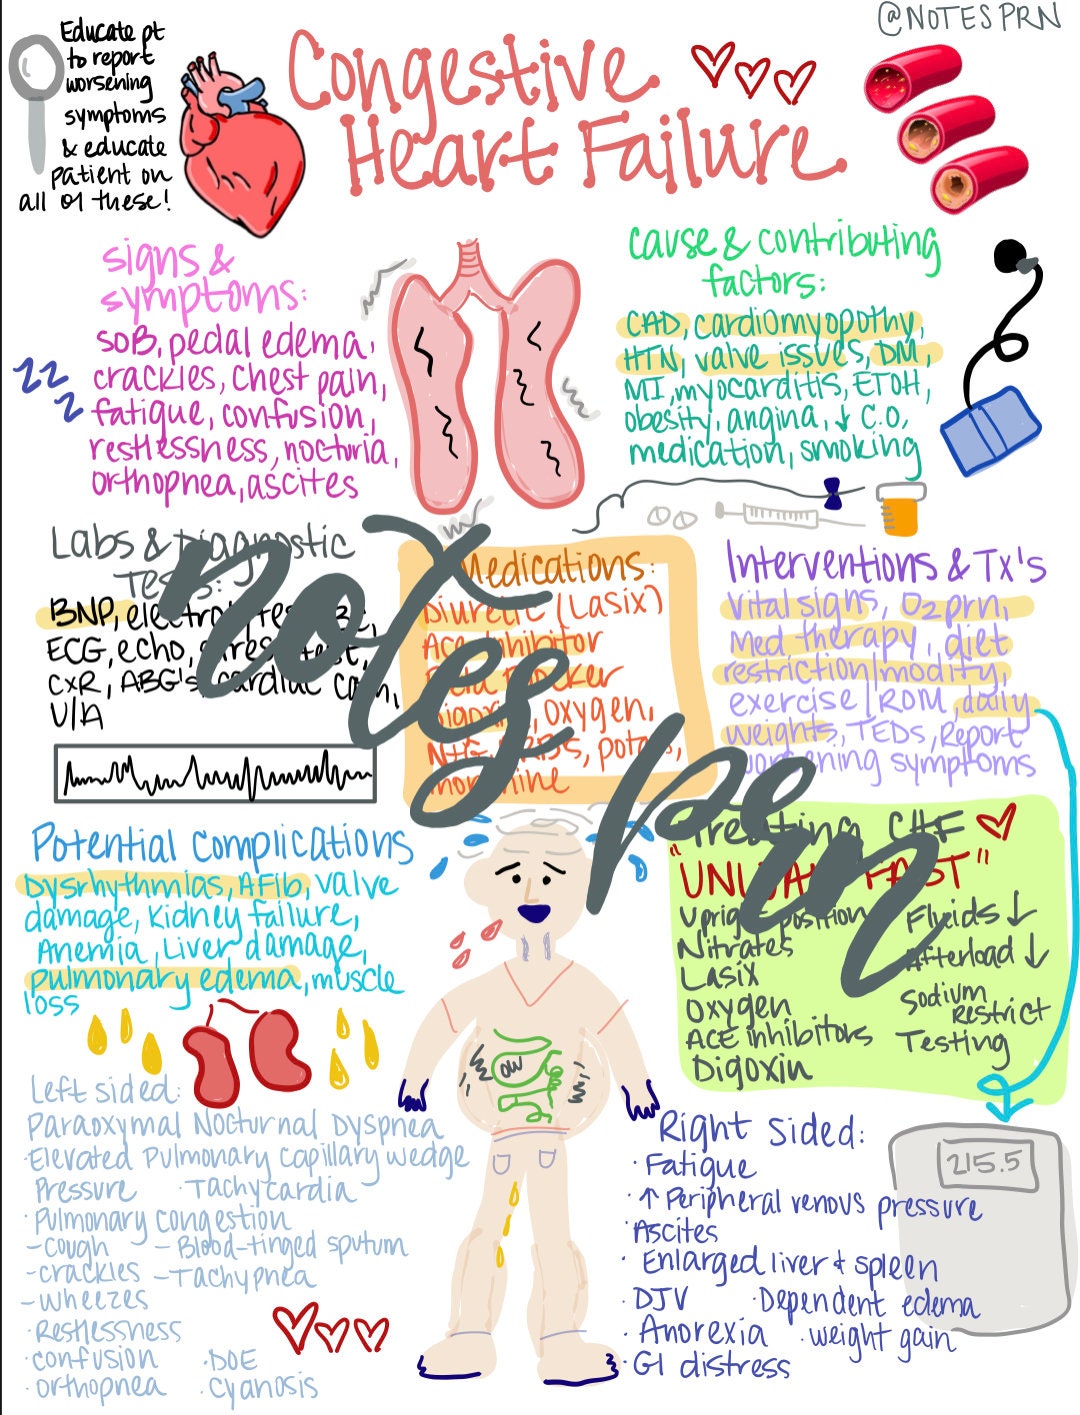 @NOTESPRN
Educate pt
to report
worsening
symptoms
& educate
patient on
all of these!
Congestive
Heart Failure
signs &
symptoms:
SOB, pedal edema,
crackles, chest pain,
fatigue, confusion,
restlessness, nocturia,
orthopnea, ascites
ZZ
Z
cause & contributing
factors:
CAD, cardiomyopothy,
HTN, valve issues, DM,
MI, myocarditis, ETOH,
obesity, angina, ↓ C.O,
medication, smoking
Labs & Diagnostic
Tests:
BNP, electrolytes,
ECG, echo, stress test,
CXR, ABG's, cardiac cath,
U/A
Medications:
Diuretic (Lasix)
Ace inhibitor
Beta Blocker
Digoxin, oxygen,
NTG, ARBs, potass,
morphine
Interventions & Tx's
Vital signs, O2 prn,
Med therapy, diet
restriction/modify,
exercise/ROM, daily
weights, TEDs, Report
worsening symptoms
notes prn
Potential Complications
Dysrhythmias, AFib, valve
damage, Kidney failure,
Anemia, Liver damage,
pulmonary edema, muscle
loss
Treating CHF
"UNLOAD FAST"
Upright position
Nitrates
Lasix
Oxygen
ACE inhibitors
Digoxin
Fluids ↓
Afterload ↓
Sodium
Restrict
Testing
ow
Left sided:
Paraoxymal Nocturnal Dyspnea
·Elevated Pulmonary Capillary wedge
Pressure ·Tachycardia
·Pulmonary congestion
-cough -Blood-tinged sputum
-crackles -Tachypnea
-wheezes
·Restlessness
·confusion ·DOE
·orthopnea ·cyanosis
Right Sided:
·Fatigue
·↑ Peripheral venous pressure
·Ascites
·Enlarged liver & spleen
·DJV ·Dependent edema
·Anorexia ·weight gain
·GI distress
215.5